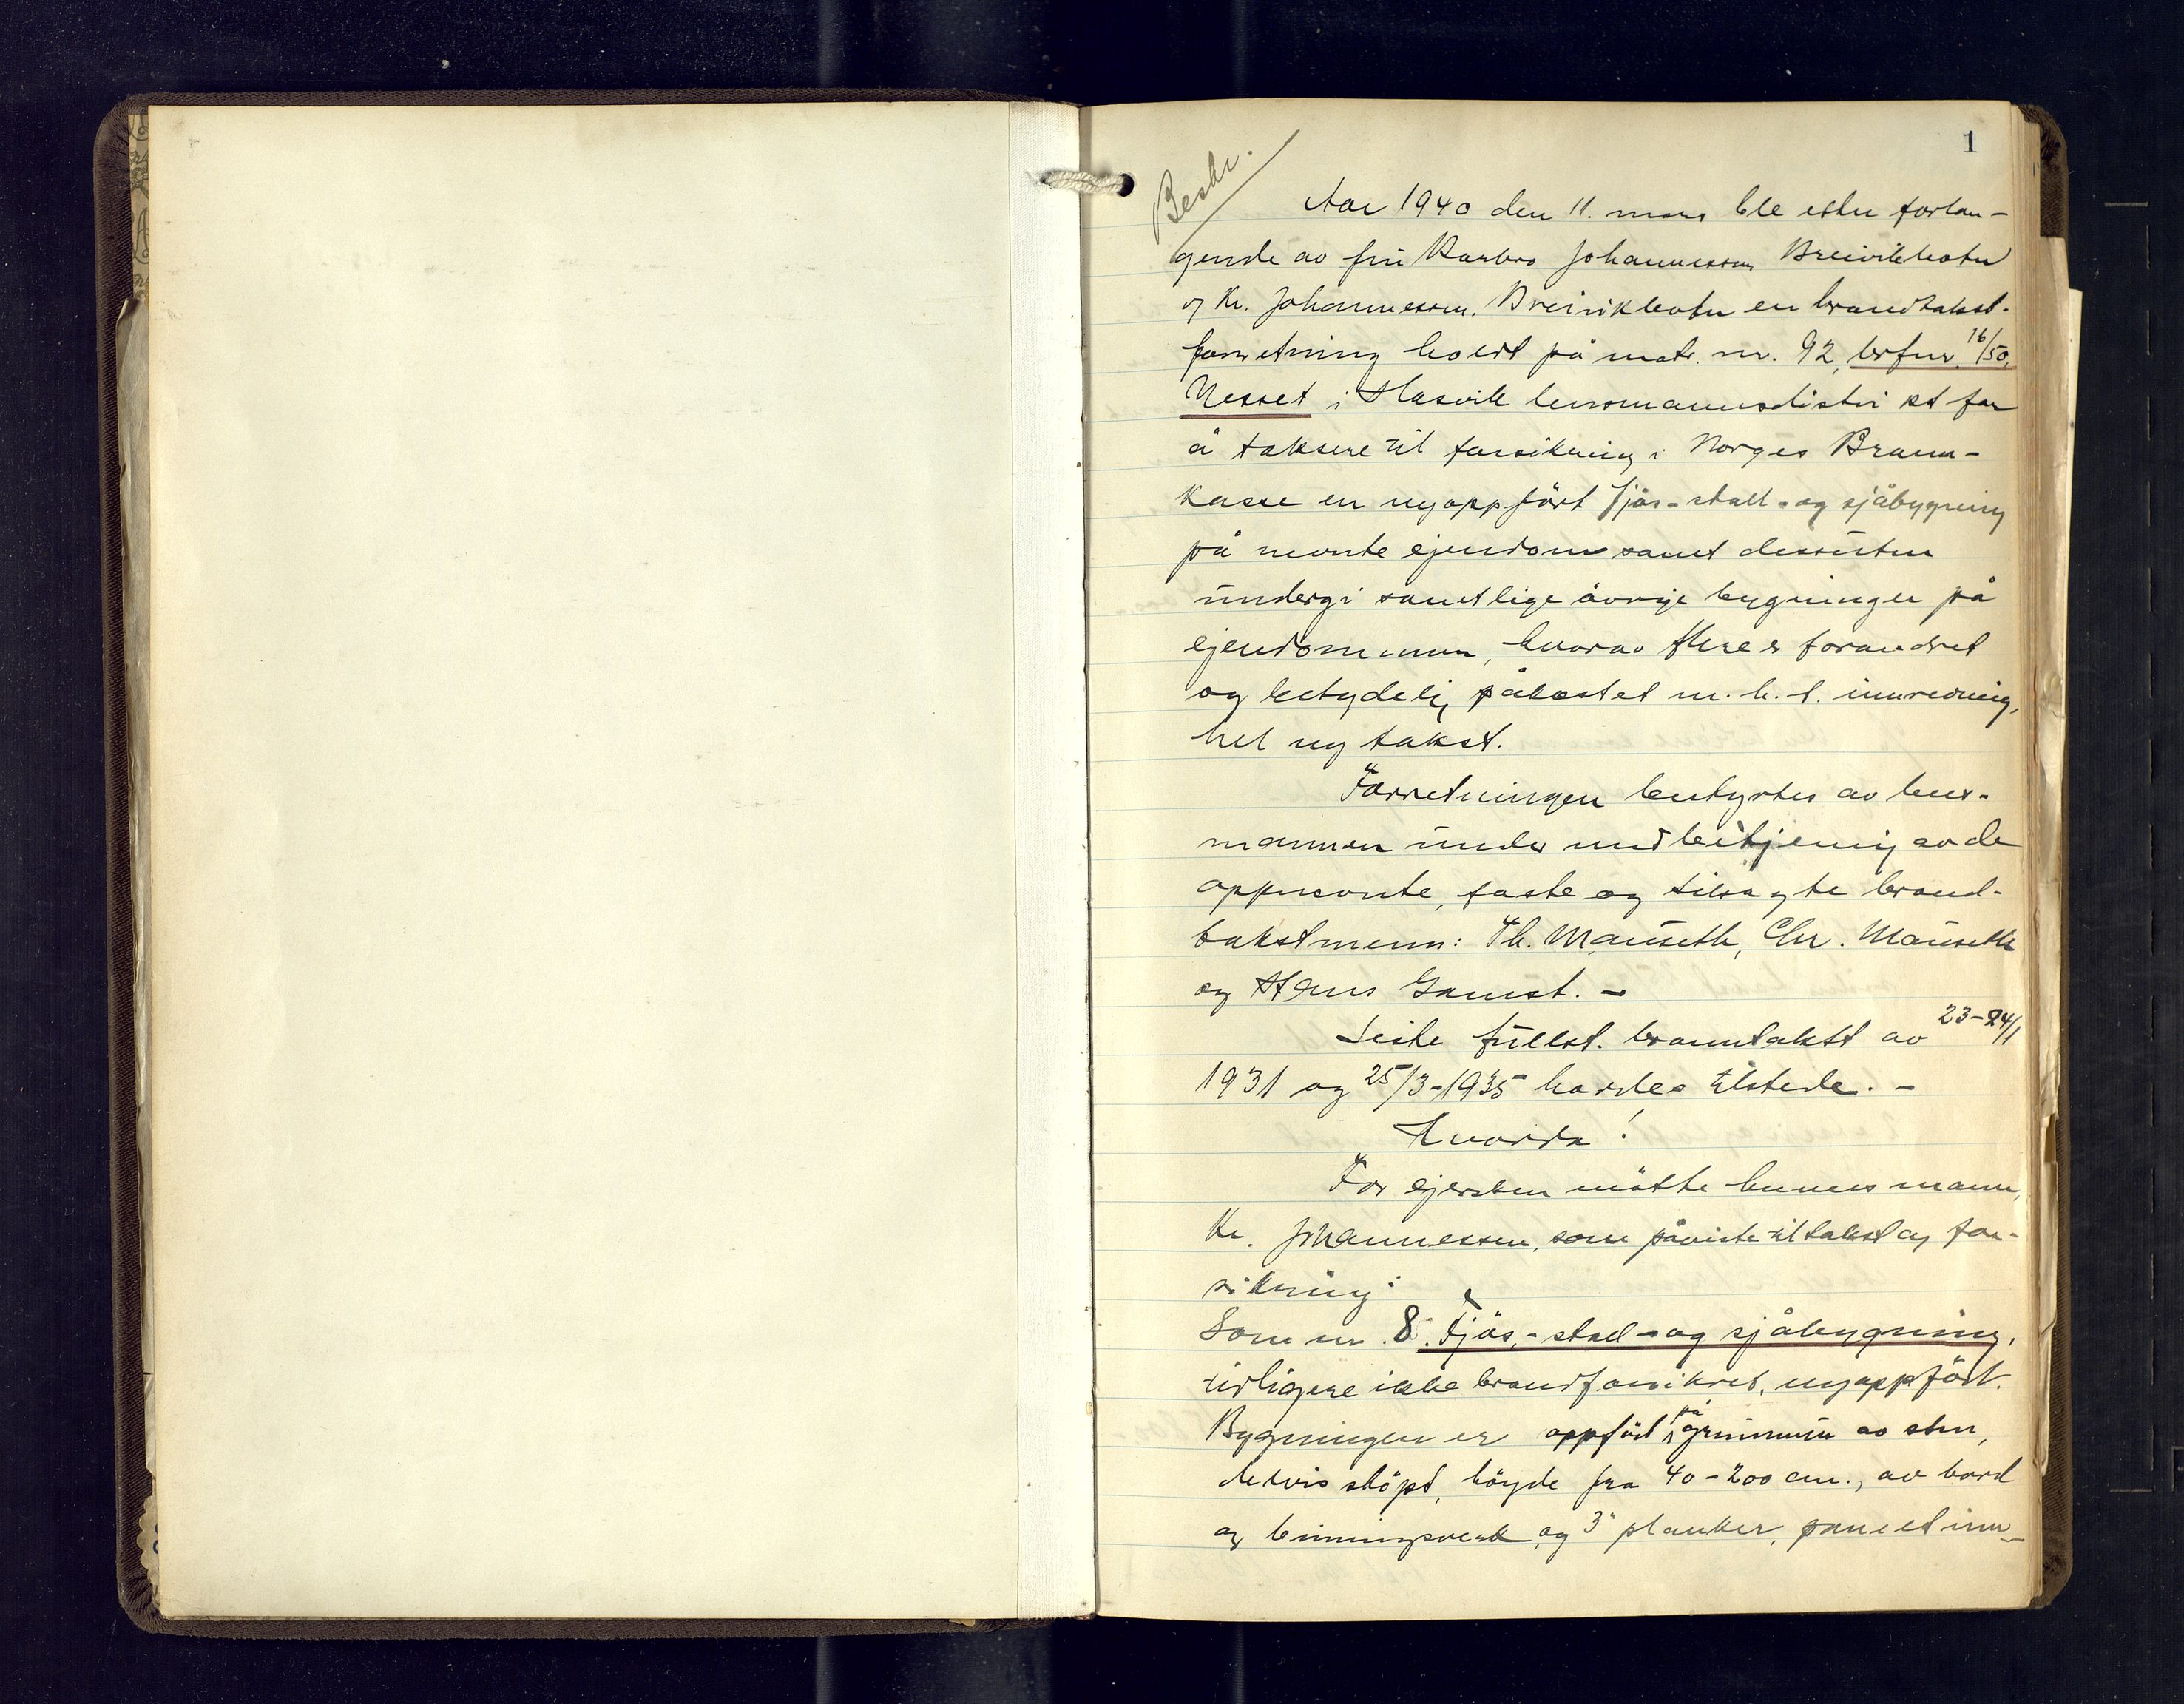 1
Beskr.
Aar 1940 den 11. mars ble etter forlan-
gende av fru Barbro Johannessen Breivikbotn
og Kr. Johannessen. Breivikbotn en brandtakst-
forretning holdt på matr. nr. 92, brfnr. 16/50,
Nesset i Hasvik lensmannsdistrikt for
å taksere til forsikring i Norges Brann-
kasse en nyoppført fjøs- stall- og sjåbygning
på nevnte ejendom samt dessuten
undergi samtlige øvrige bygninger på
ejendommen, hvorav flere er forandret
og betydelig påkostet m. h. t. innredning,
hel ny takst.
Forretningen bestyrtes av lens-
mannen under medbetjening av de
oppnevnte, faste og tilsagte brand-
takstmenn: Th. Mauseth, Chr. Mauseth
og Hans Gamst. -
Siste fullst. branntakst av 23-24/1
1931 og 25/3-1935 havdes tilstede. -
Hvorda!
For ejersken møtte hennes mann,
Kr. Johannessen, som påviste til takst og for-
sikring:
Som nr. 8. Fjøs,- stall- og sjåbygning,
tidligere ikke brandforsikret, nyoppført.
Bygningen er oppført på grunnmur av sten,
delvis støpt, høyde fra 40-200 cm., av bord
og binningsverk, og 3" planker, panelt inn-